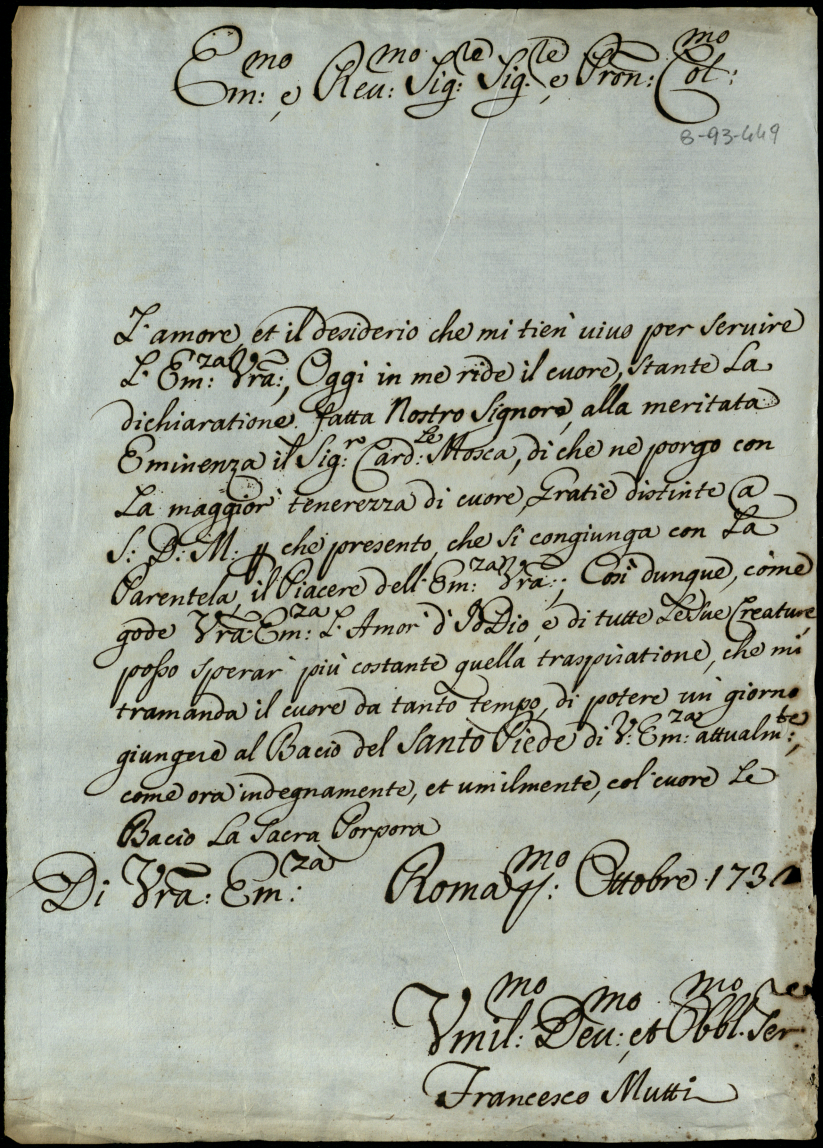 Em:mo e Reu:mo Sig:re Sig:re e Pron: Col:mo
8-93-449
L'amore, et il desiderio che mi tien uiuo per seruire
L'Em:za Vra:, Oggi in me ride il cuore, stante La
dichiaratione fatta Nostro Signore, alla meritata
Eminenza il Sig:r Card:le Mosca, di che ne porgo con
La maggior tenerezza di cuore, Gratie distinte a
S: D: M: che presento, che si congiunga con La
Parentela, il Piacere dell'Em:za Vra:; Cosi dunque, come
gode Vra: Em:za L'Amor d'IdDio, e di tutte Le sue Creature
posso sperar più costante quella traspiratione, che mi
tramanda il cuore da tanto tempo, di potere un giorno
giungere al Bacio del Santo Piede di V: Em:za attualm:te,
come ora indegnamente, et umilmente, col cuore Le
Bacio La Sacra Porpora
Di Vra: Em:za Roma Ottobre 173
Vmil:mo Deu:mo et Obbl:mo Ser:re
Francesco Mutti